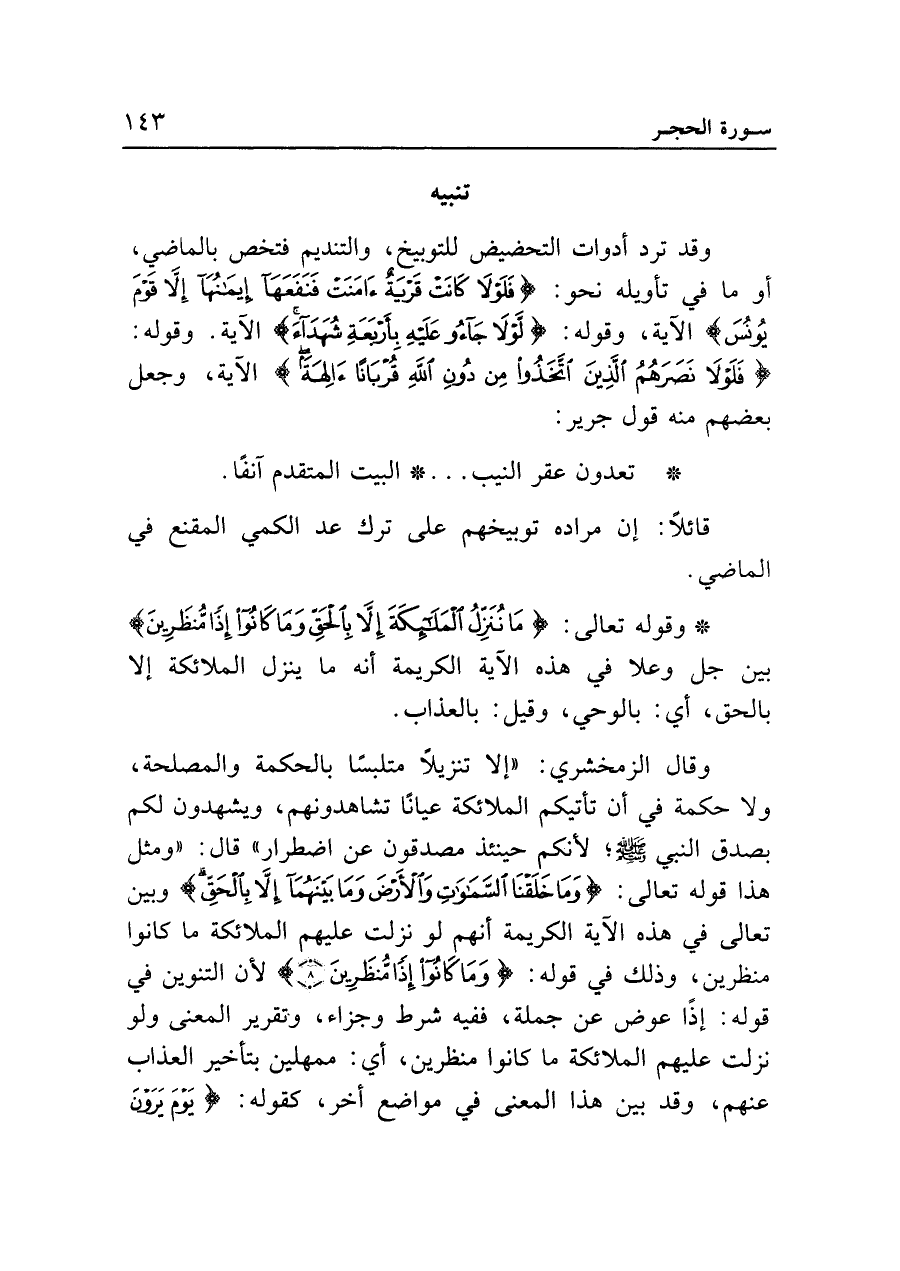 سورة الحجر ١٤٣
تنبيه
وقد ترد أدوات التحضيض للتوبيخ، والتنديم فتخص بالماضي،
أو ما في تأويله نحو: ﴿فَلَوْلَا كَانَتْ قَرْيَةٌ ءَامَنَتْ فَنَفَعَهَآ إِيمَٰنُهَآ إِلَّا قَوْمَ
يُونُسَ﴾ الآية، وقوله: ﴿لَّوْلَا جَآءُو عَلَيْهِ بِأَرْبَعَةِ شُهَدَآءَۚ﴾ الآية. وقوله:
﴿فَلَوْلَا نَصَرَهُمُ ٱلَّذِينَ ٱتَّخَذُوا۟ مِن دُونِ ٱللَّهِ قُرْبَانًا ءَالِهَةَۢۖ﴾ الآية، وجعل
بعضهم منه قول جرير:
* تعدون عقر النيب...* البيت المتقدم آنفًا.
قائلاً: إن مراده توبيخهم على ترك عد الكمي المقنع في
الماضي.
* وقوله تعالى: ﴿مَا نُنَزِّلُ ٱلْمَلَٰٓئِكَةَ إِلَّا بِٱلْحَقِّ وَمَا كَانُوٓا۟ إِذًا مُّنظَرِينَ﴾
بين جل وعلا في هذه الآية الكريمة أنه ما ينزل الملائكة إلا
بالحق، أي: بالوحي، وقيل: بالعذاب.
وقال الزمخشري: «إلا تنزيلاً متلبسًا بالحكمة والمصلحة،
ولا حكمة في أن تأتيكم الملائكة عيانًا تشاهدونهم، ويشهدون لكم
بصدق النبي ﷺ؛ لأنكم حينئذ مصدقون عن اضطرار» قال: «ومثل
هذا قوله تعالى: ﴿وَمَا خَلَقْنَا ٱلسَّمَٰوَٰتِ وَٱلْأَرْضَ وَمَا بَيْنَهُمَآ إِلَّا بِٱلْحَقِّۗ﴾ وبين
تعالى في هذه الآية الكريمة أنهم لو نزلت عليهم الملائكة ما كانوا
منظرين، وذلك في قوله: ﴿وَمَا كَانُوٓا۟ إِذًا مُّنظَرِينَ ٨﴾ لأن التنوين في
قوله: إذًا عوض عن جملة، ففيه شرط وجزاء، وتقرير المعنى ولو
نزلت عليهم الملائكة ما كانوا منظرين، أي: ممهلين بتأخير العذاب
عنهم، وقد بين هذا المعنى في مواضع أخر، كقوله: ﴿يَوْمَ يَرَوْنَ